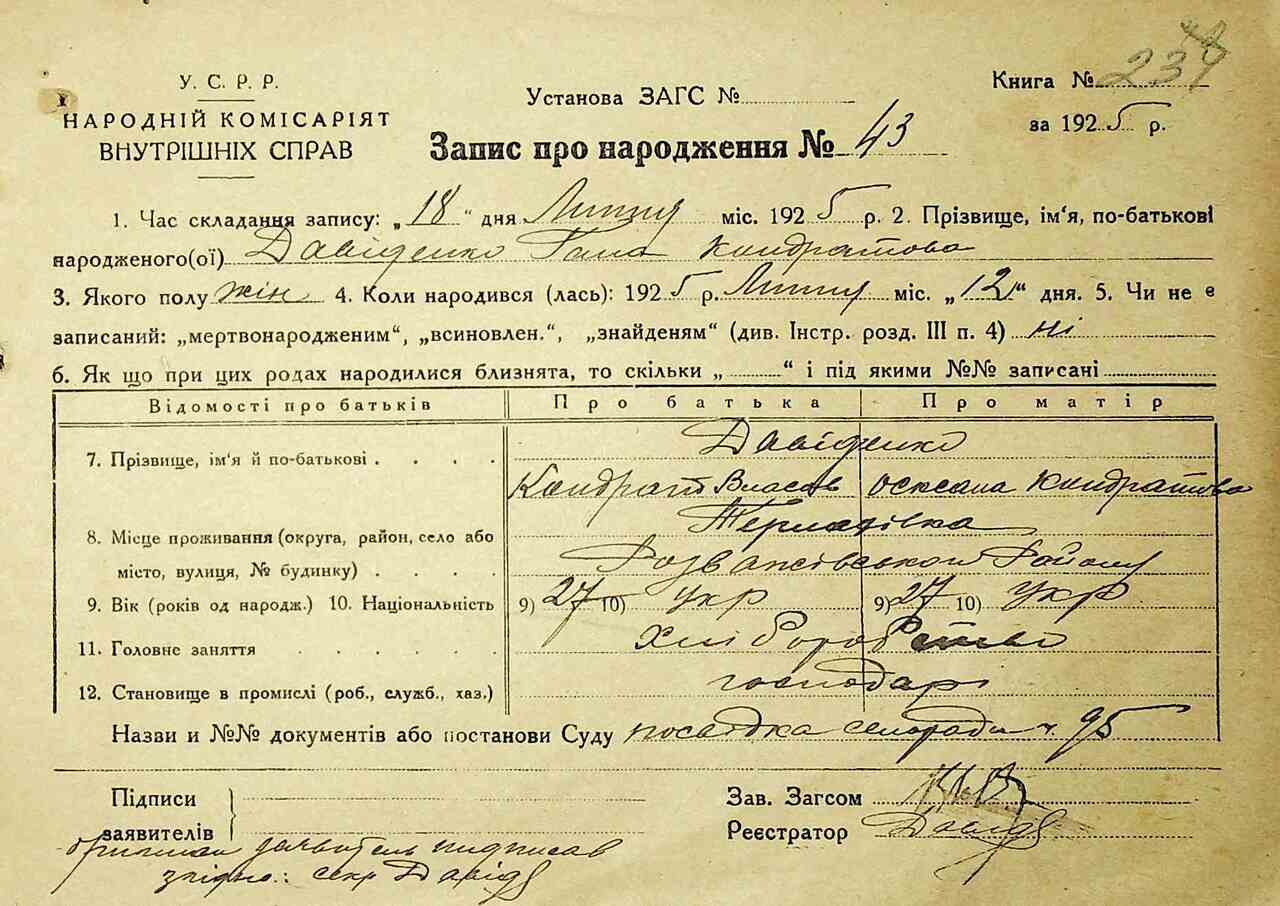 У. С. Р. Р.
НАРОДНІЙ КОМІСАРІЯТ
ВНУТРІШНІХ СПРАВ
Установа ЗАГС №
Книга № 234
за 1925 р.
Запис про народження № 43
1. Час складання запису: „18“ дня Липня міс. 1925 р. 2. Прізвище, ім'я, по-батькові
народженого(ої) Давіденко Гана Кондратова
3. Якого полу жін 4. Коли народився (лась): 1925 р. Липня міс. „12“ дня. 5. Чи не є
записаний: „мертвонародженим“, „всиновлен.“, „знайденям“ (див. Інстр. розд. III п. 4) ні
6. Як що при цих родах народилися близнята, то скільки „ “ і під якими №№ записані
Відомості про батьків Про батька Про матір
7. Прізвище, ім'я й по-батькові Давіденко
Кондрат Власов Оксана Кондратова
8. Місце проживання (округа, район, село або
місто, вулиця, № будинку)
Розважівського Району
9. Вік (років од народж.) 10. Національність 9) 27 10) Укр 9) 27 10) Укр
11. Головне заняття Хліборобство
12. Становище в промислі (роб., служб., хаз.) господарі
Назви и №№ документів або постанови Суду посвідка сельради ч. 95
Підписи
заявителів
Зав. Загсом
Реєстратор Давід
оригинал заявитель підписав
згідно: секр Давід